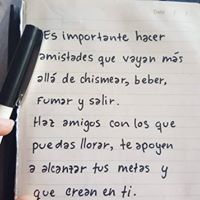 Es importante hacer
amistades que vayan más
allá de chismear, beber,
fumar y salir.
Haz amigos con los que
puedas llorar, te apoyen
a alcanzar tus metas y
que crean en ti.